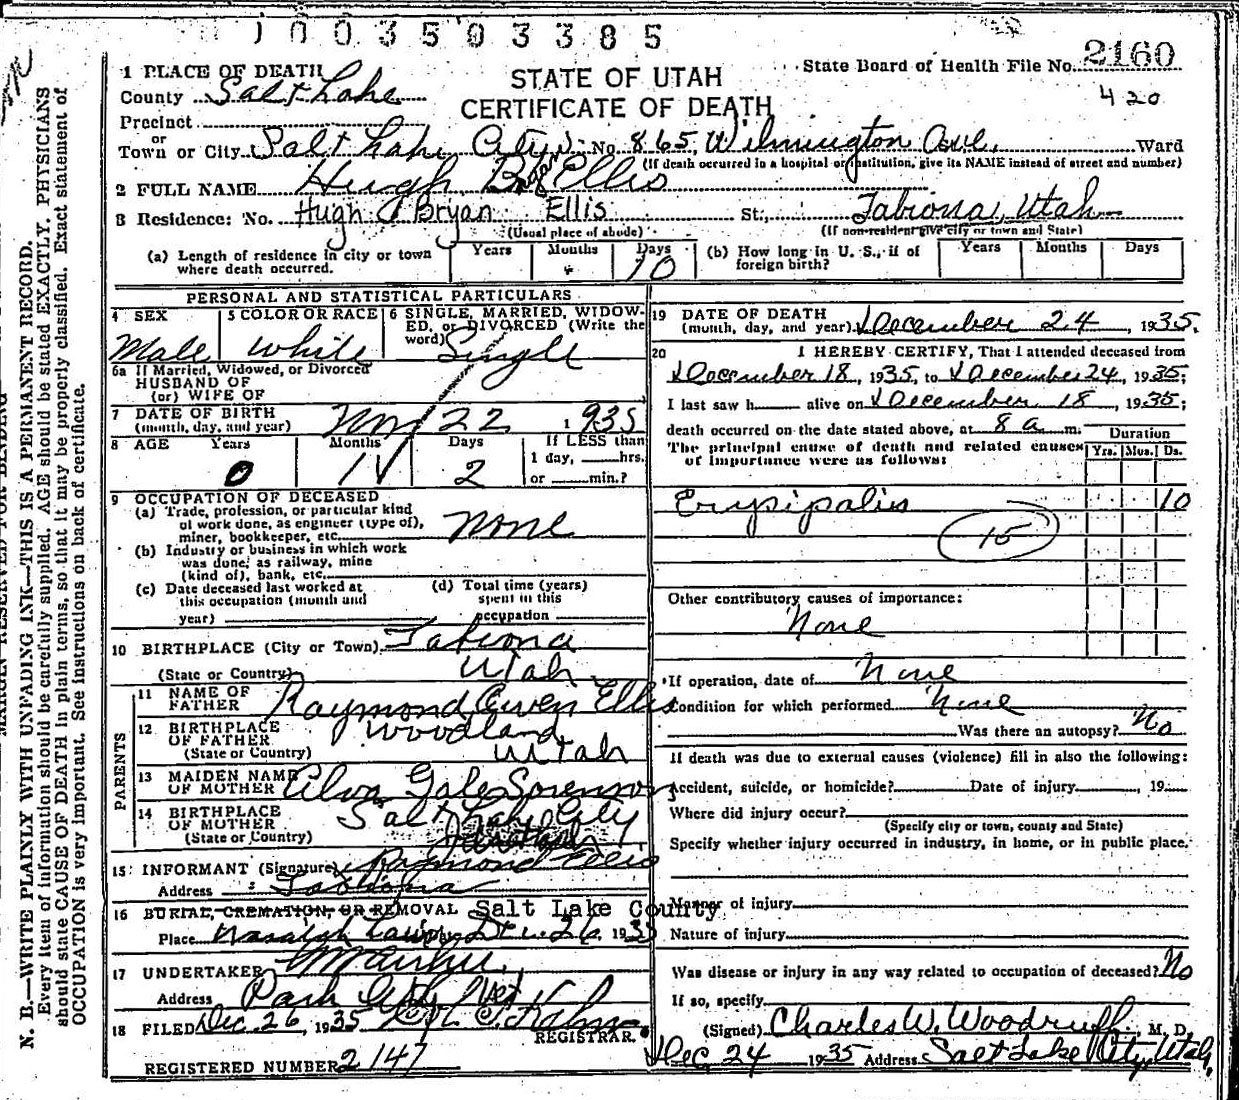 1003503385
2160
State Board of Health File No.
420
STATE OF UTAH
CERTIFICATE OF DEATH
1 PLACE OF DEATH
County Salt Lake
Precinct
or
Town or City Salt Lake City No. 865 Wilmington Ave. Ward
(If death occurred in a hospital or institution, give its NAME instead of street and number)
2 FULL NAME Hugh Ellis
3 Residence: No. Hugh Bryan Ellis St., Tabiona, Utah
(Usual place of abode) (If non-resident give city or town and State)
(a) Length of residence in city or town where death occurred. Years Months Days 10
(b) How long in U. S., if of foreign birth? Years Months Days
PERSONAL AND STATISTICAL PARTICULARS
4 SEX Male
5 COLOR OR RACE White
6 SINGLE, MARRIED, WIDOWED, or DIVORCED (Write the word) Single
6a If Married, Widowed, or Divorced
HUSBAND OF
(or) WIFE OF
7 DATE OF BIRTH
(month, day, and year) Nov 22 1935
8 AGE Years Months Days If LESS than
0 1 2 1 day, hrs.
or min.?
9 OCCUPATION OF DECEASED
(a) Trade, profession, or particular kind
of work done, as engineer (type of),
miner, bookkeeper, etc. None
(b) Industry or business in which work
was done, as railway, mine
(kind of), bank, etc.
(c) Date deceased last worked at
this occupation (month and
year)
(d) Total time (years)
spent in this
occupation
10 BIRTHPLACE (City or Town) Tabiona
(State or Country) Utah
PARENTS
11 NAME OF
FATHER Raymond Owen Ellis
12 BIRTHPLACE
OF FATHER Woodland
(State or Country) Utah
13 MAIDEN NAME
OF MOTHER Alva Gale Sorenson
14 BIRTHPLACE
OF MOTHER Salt Lake City
(State or Country)
15 INFORMANT (Signature) Raymond Ellis
Address Tabiona
16 BURIAL, CREMATION, OR REMOVAL Salt Lake County
Place Wasatch Lawn Dec. 26, 1935
17 UNDERTAKER
Address Park City Utah
18 FILED Dec 26, 1935
REGISTRAR.
REGISTERED NUMBER 2147
19 DATE OF DEATH
(month, day, and year) December 24, 1935.
20 I HEREBY CERTIFY, That I attended deceased from
December 18, 1935, to December 24, 1935;
I last saw h alive on December 18, 1935;
death occurred on the date stated above, at 8 a m.
Duration
The principal cause of death and related causes
of importance were as follows:
Yrs. Mos. Ds.
Erysipalis 10
15
Other contributory causes of importance:
None
If operation, date of None
Condition for which performed None
Was there an autopsy? No
If death was due to external causes (violence) fill in also the following:
Accident, suicide, or homicide? Date of injury , 19
Where did injury occur?
(Specify city or town, county and State)
Specify whether injury occurred in industry, in home, or in public place.
Manner of injury
Nature of injury
Was disease or injury in any way related to occupation of deceased? No
If so, specify
(Signed) Charles W. Woodruff, M. D.
Dec 24 1935 Address Salt Lake City, Utah.
MARGIN RESERVED FOR BINDING
N. B.—WRITE PLAINLY WITH UNFADING INK—THIS IS A PERMANENT RECORD.
Every item of information should be carefully supplied. AGE should be stated EXACTLY. PHYSICIANS
should state CAUSE OF DEATH in plain terms, so that it may be properly classified. Exact statement of
OCCUPATION is very important. See instructions on back of certificate.